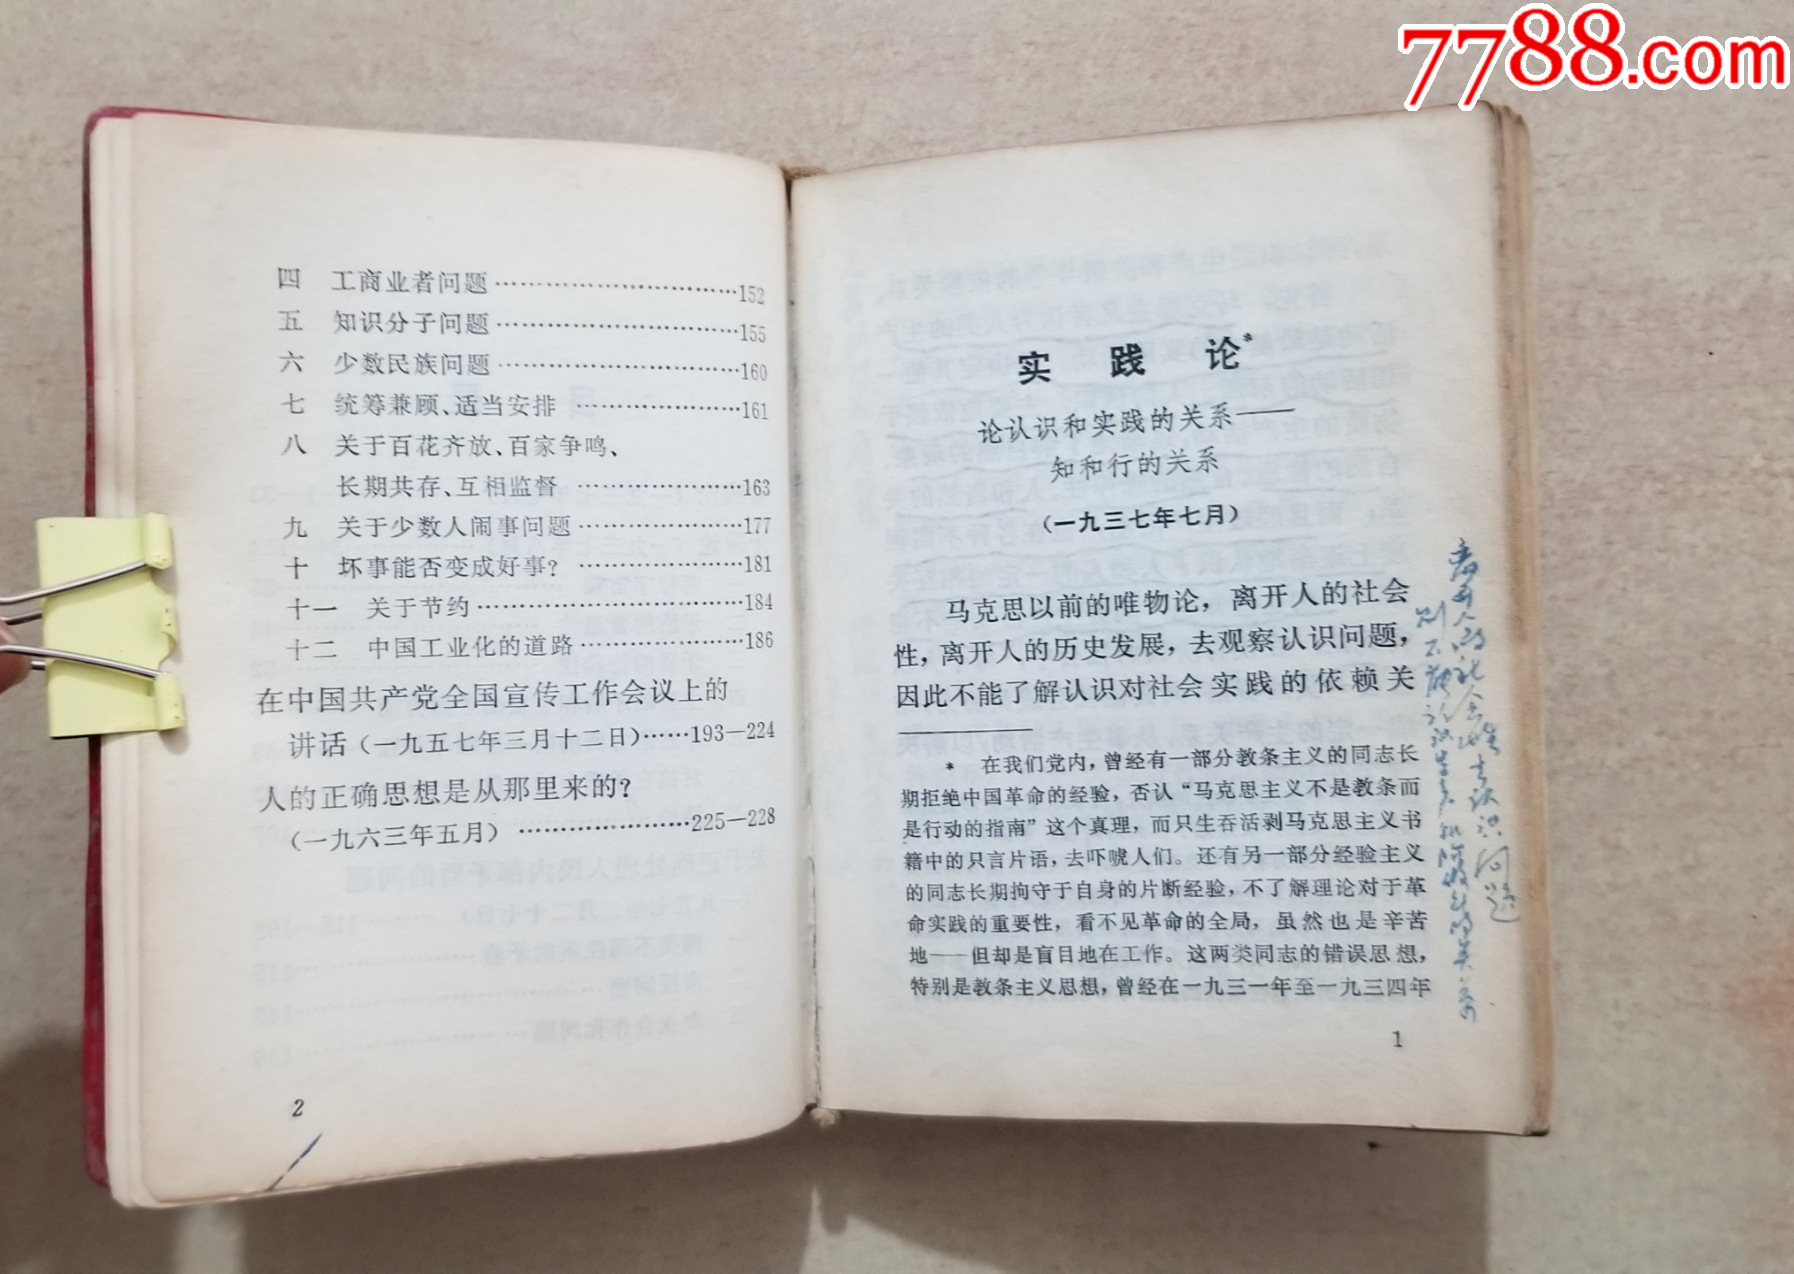 7788.com
四 工商业者问题…………………………152
五 知识分子问题…………………………155
六 少数民族问题…………………………160
七 统筹兼顾、适当安排 …………………161
八 关于百花齐放、百家争鸣、
长期共存、互相监督 …………………163
九 关于少数人闹事问题…………………177
十 坏事能否变成好事? …………………181
十一 关于节约……………………………184
十二 中国工业化的道路…………………186
在中国共产党全国宣传工作会议上的
讲话(一九五七年三月十二日)……193—224
人的正确思想是从那里来的?
(一九六三年五月) …………………225—228
2
实践论*
论认识和实践的关系——
知和行的关系
(一九三七年七月)
马克思以前的唯物论,离开人的社会
性,离开人的历史发展,去观察认识问题,
因此不能了解认识对社会实践的依赖关
* 在我们党内,曾经有一部分教条主义的同志长
期拒绝中国革命的经验,否认“马克思主义不是教条而
是行动的指南”这个真理,而只生吞活剥马克思主义书
籍中的只言片语,去吓唬人们。还有另一部分经验主义
的同志长期拘守于自身的片断经验,不了解理论对于革
命实践的重要性,看不见革命的全局,虽然也是辛苦
地——但却是盲目地在工作。这两类同志的错误思想,
特别是教条主义思想,曾经在一九三一年至一九三四年
1
离开人的社会性去认识问题